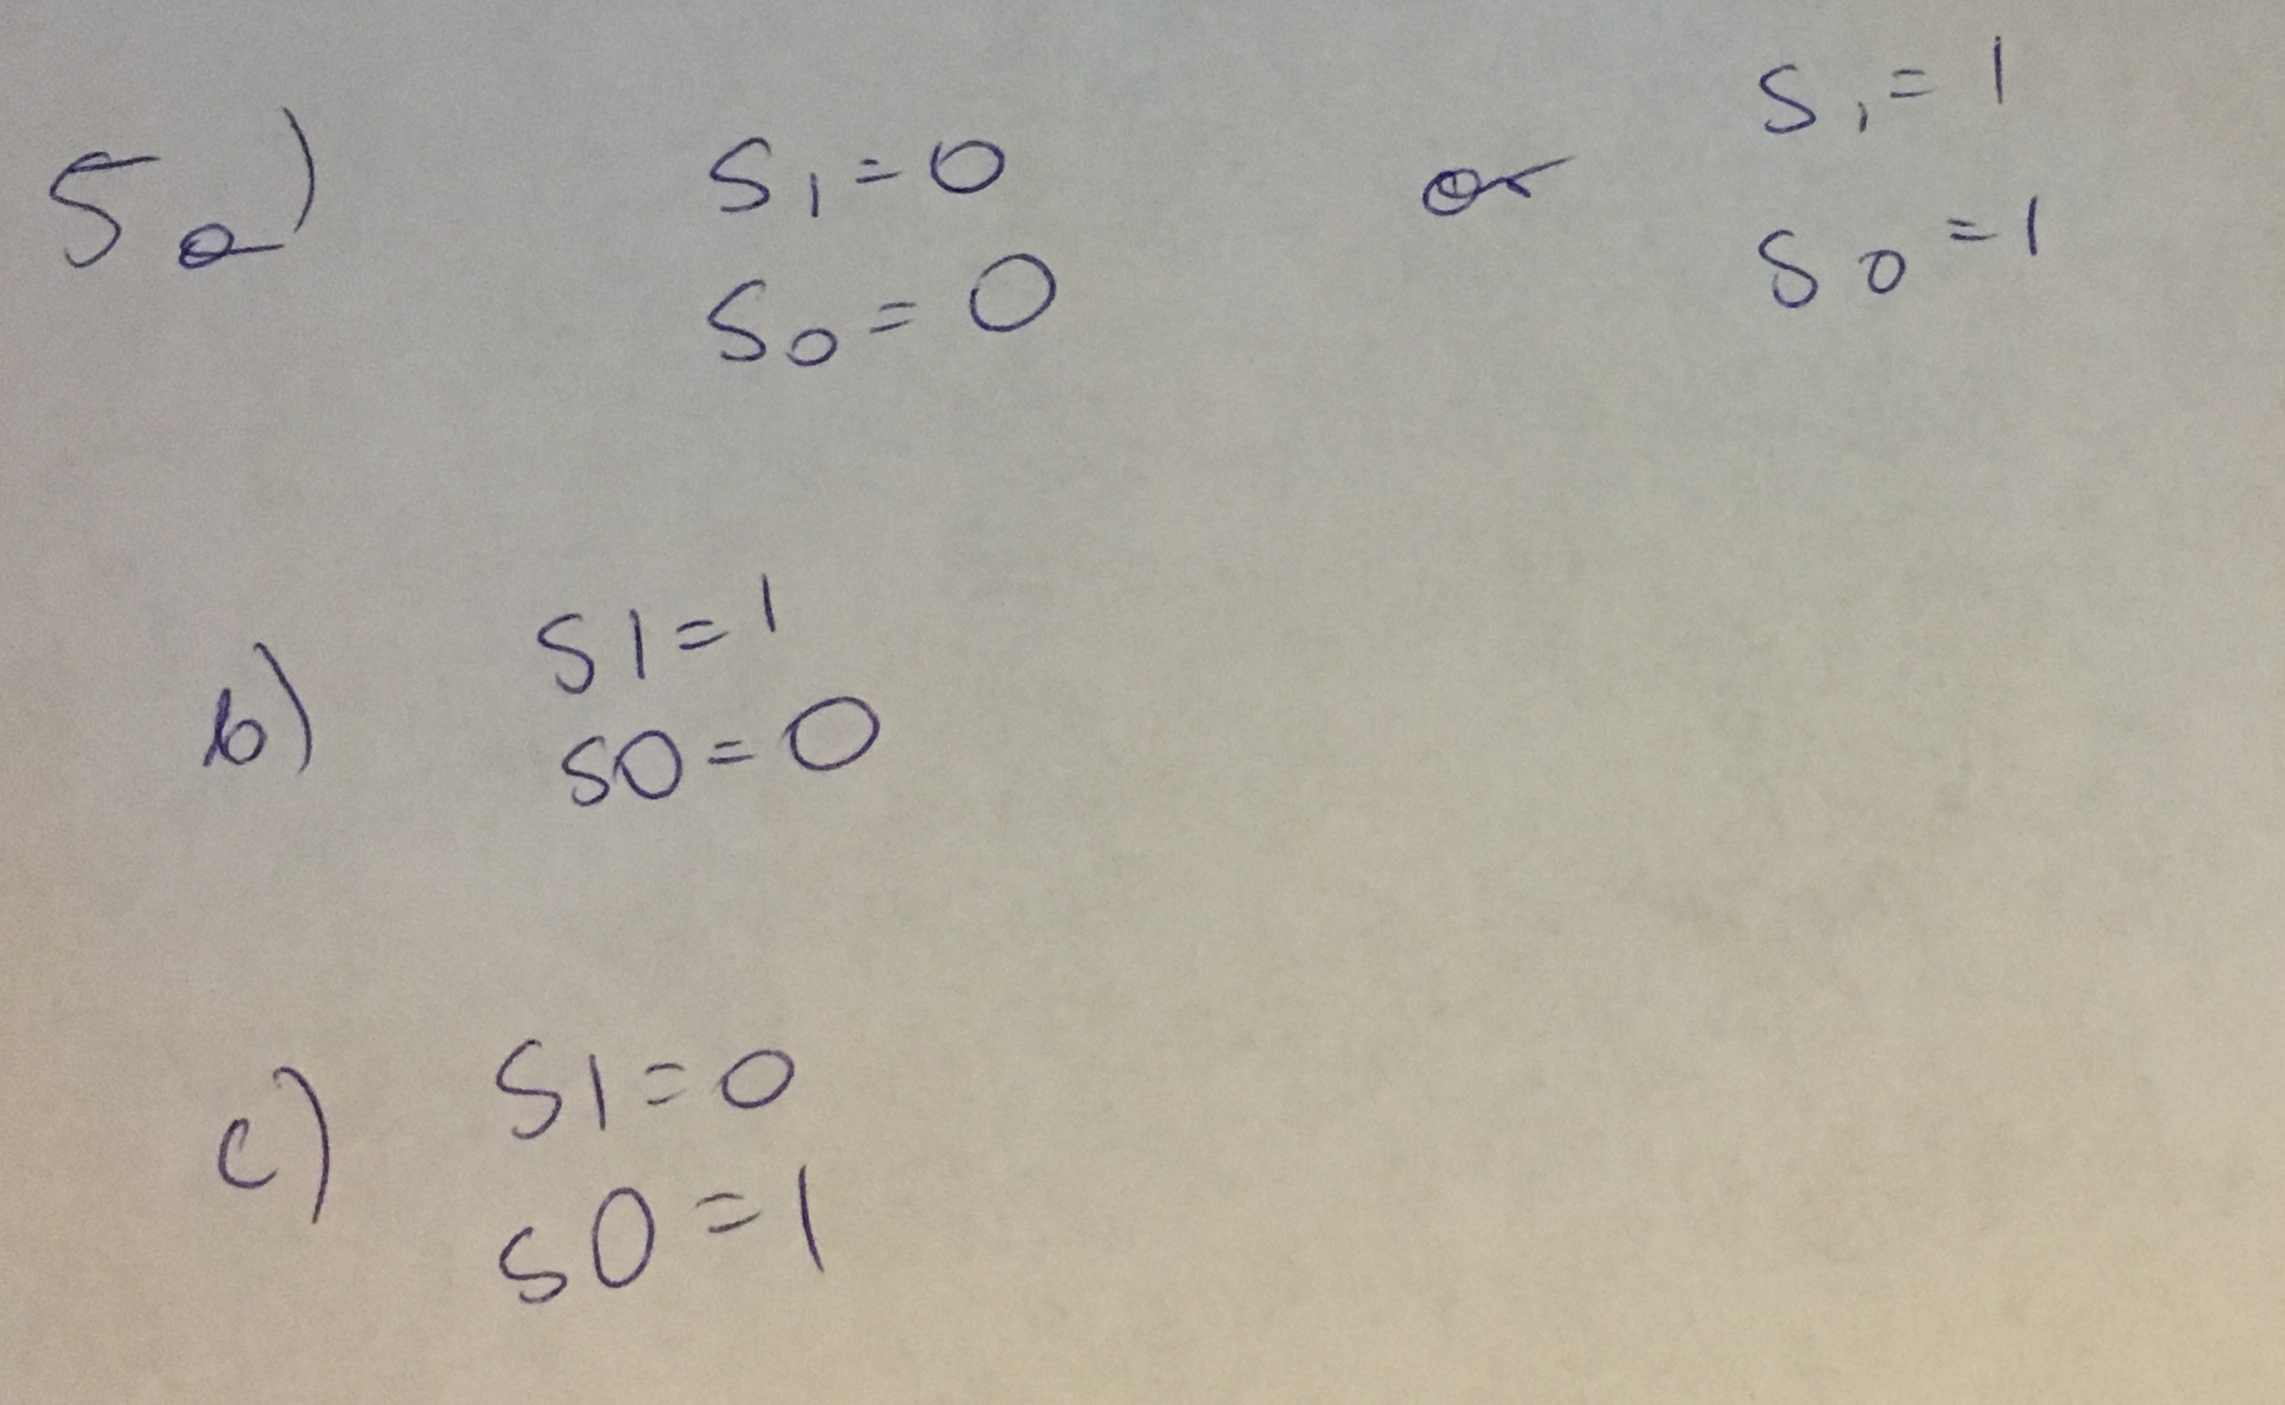 5a) S1=0 or S1=1
S0=0 S0=1
b) S1=1
S0=0
c) S1=0
S0=1